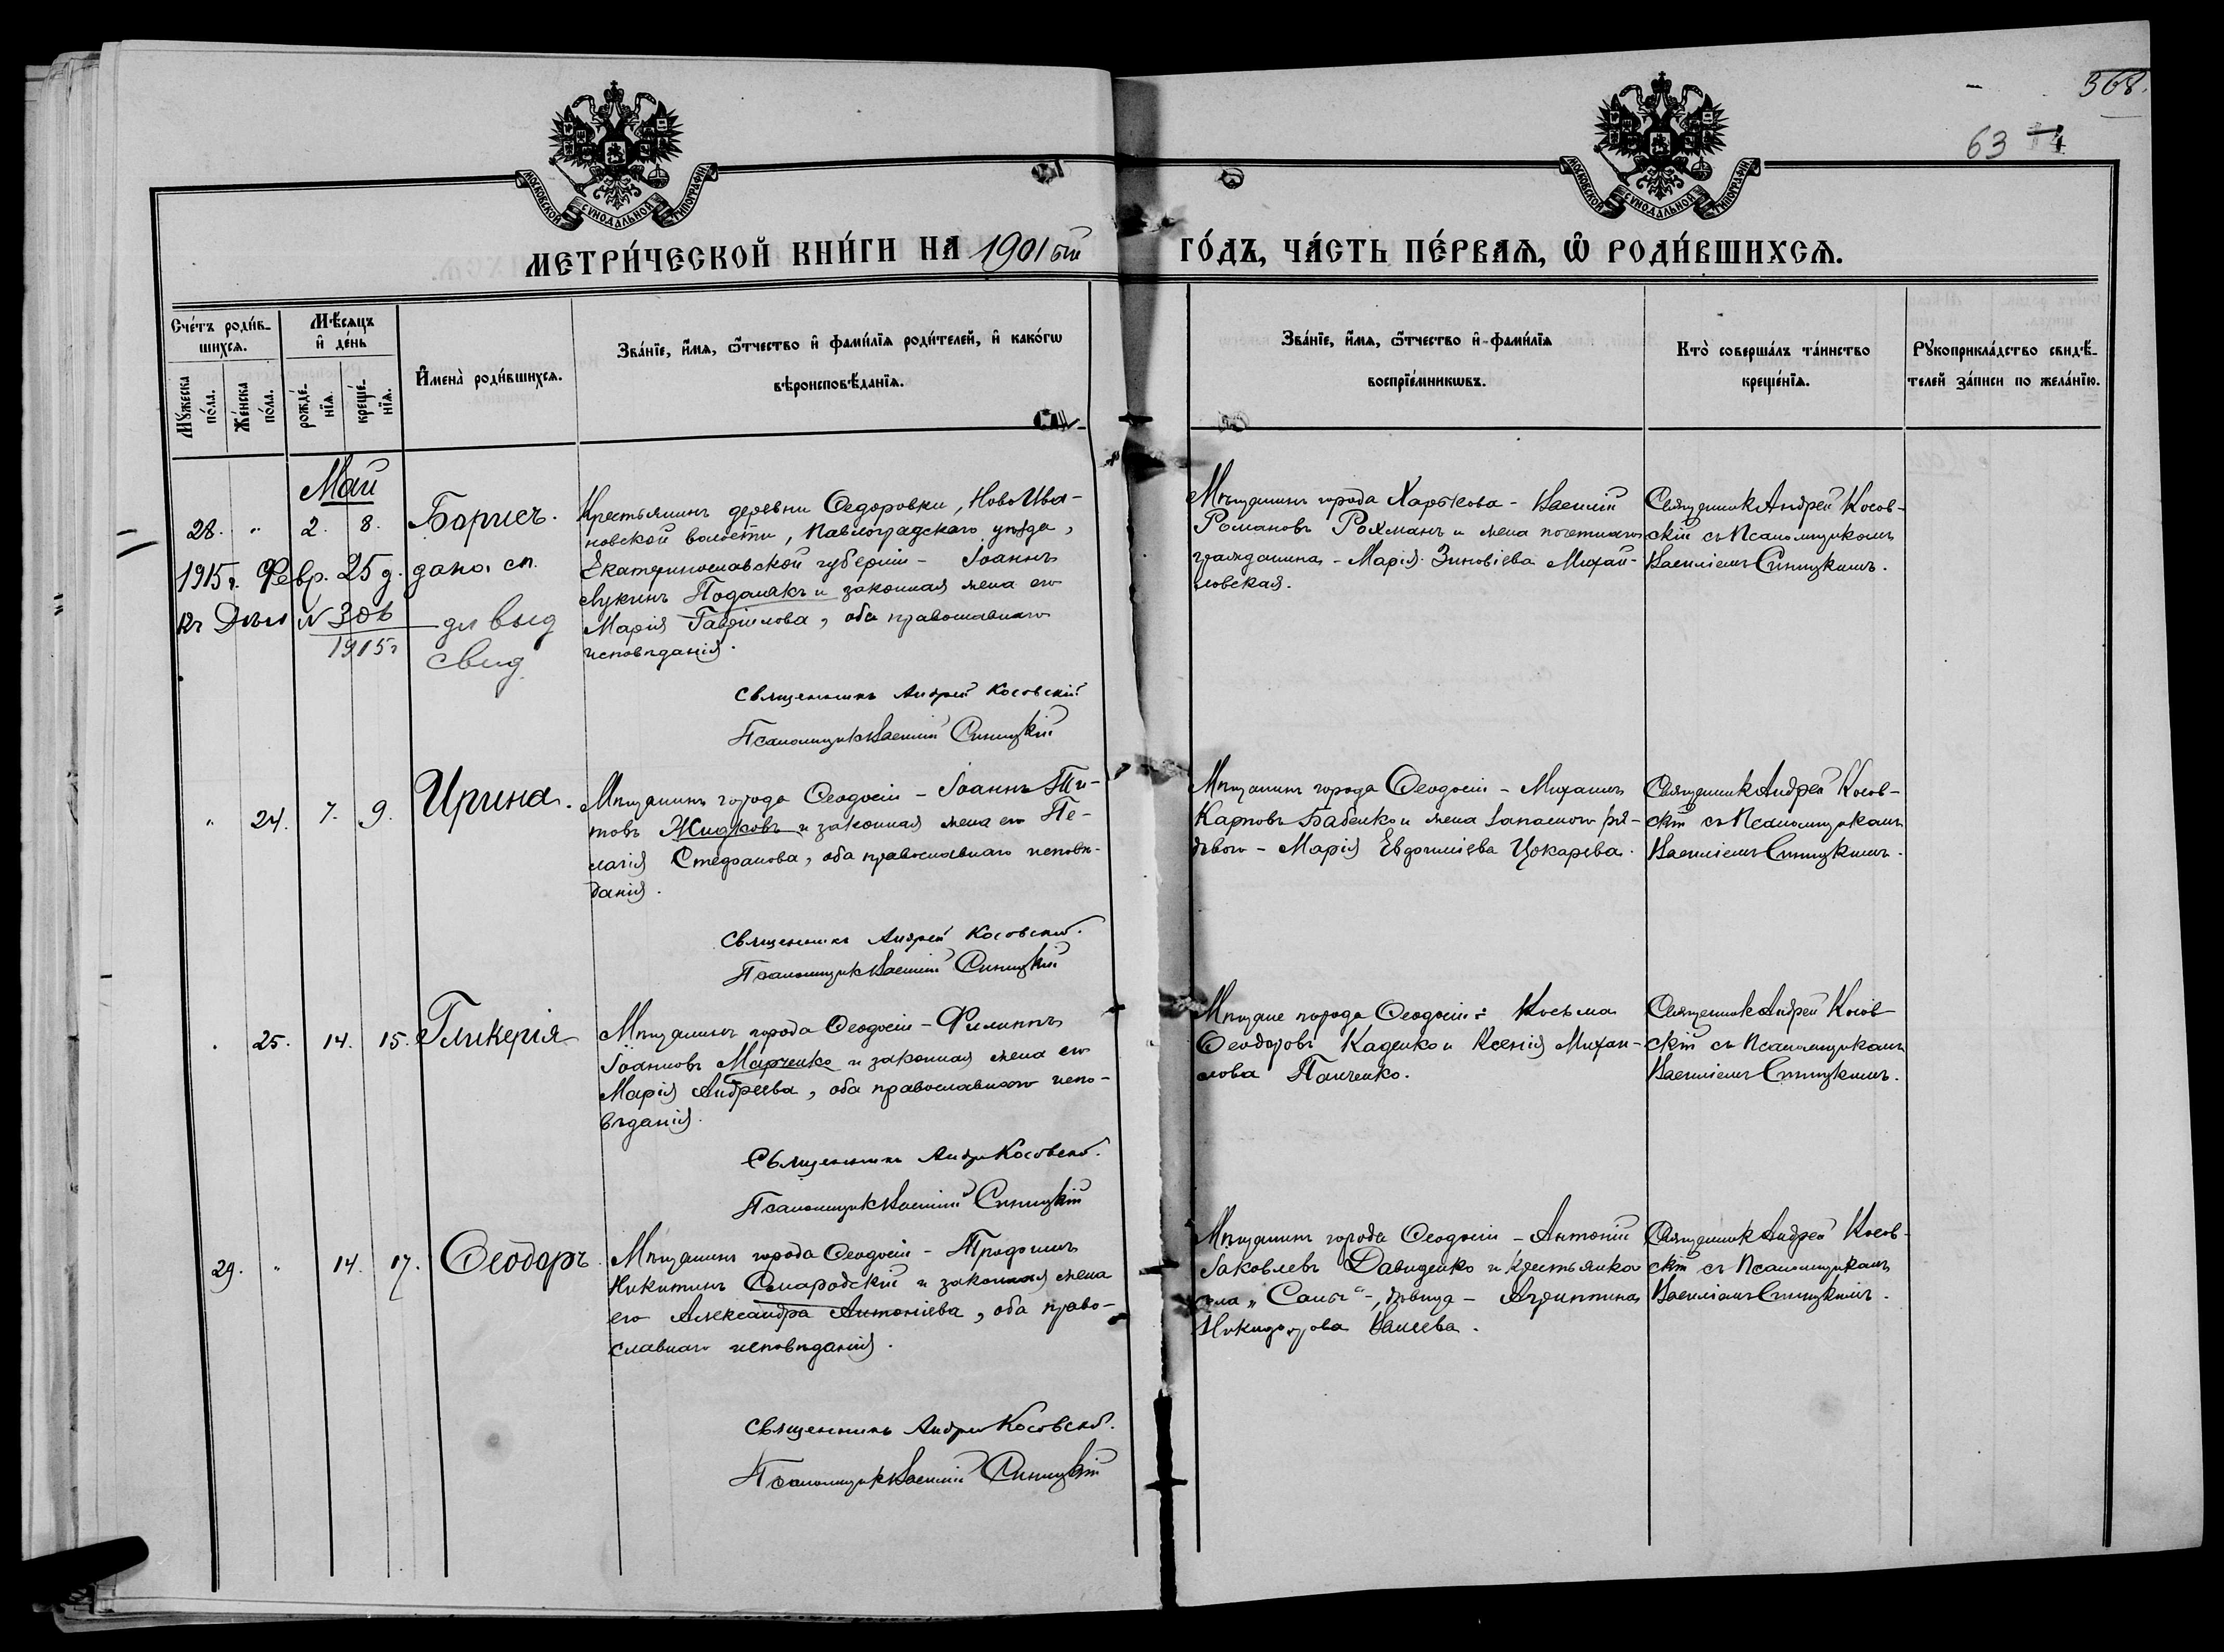 368.
63
МОСКОВСКОЙ СѴНОДАЛЬНОЙ ТИПОГРАФІИ
МОСКОВСКОЙ СѴНОДАЛЬНОЙ ТИПОГРАФІИ
МЕТРИ́ЧЕСКОЙ КНИ́ГИ НА 1901ый ГО́ДЪ, ЧА́СТЬ ПЕ́РВАѦ, Ѡ҆ РОДИ́ВШИХСѦ.
Сче́тъ роди́в-
шихсѧ.
Мꙋ́жеска
по́ла.
Же́нска
по́ла.
Мѣ́сѧцъ
и҆ де́нь
рожде́-
нїѧ.
креще́-
нїѧ.
И҆мена̀ роди́вшихсѧ.
Зва́нїе, и҆́мѧ, ѻ҆́тчество и҆ фами́лїѧ роди́телей, и҆ како́гѡ
вѣроисповѣ́данїѧ.
Зва́нїе, и҆́мѧ, ѻ҆́тчество и҆ фами́лїѧ
воспрїе́мникѡвъ.
Кто̀ соверша́лъ та́инство
креще́нїѧ.
Рꙋкоприкла́дство свидѣ́-
телей за́писи по жела́нїю.
Май
28. " 2. 8. Борисъ.
Крестьянинъ деревни Ѳедоровки, Ново Ива-
новской волости, Павлоградскаго уѣзда,
Екатеринославской губерніи - Іоаннъ
Лукинъ Подолякъ и законная жена его
Марія Гавріилова, оба православнаго
исповѣданія.
1915г. Февр. 25 д. дано. сп.
къ Дѣлу №
1915г
дл выд
свид
Священникъ Андрей Косовскій
Псаломщикъ Василій Синицкій
Мѣщанинъ города Харькова - Василій
Романовъ Рохманъ и жена почетнаго
гражданина - Марія Зиновіева Михай-
ловская.
Священникъ Андрей Косов-
скій съ Псаломщикомъ
Василіемъ Синицкимъ.
" 24. 7. 9. Ирина.
Мѣщанинъ города Ѳеодосіи - Іоаннъ Ти-
товъ Жидковъ и законная жена его Пе-
лагія Стефанова, оба православнаго исповѣ-
данія.
Священникъ Андрей Косовскій.
Псаломщикъ Василій Синицкій
Мѣщанинъ города Ѳеодосіи - Михаилъ
Карповъ Бабенко и жена запаснаго ря-
дового - Марія Евдокиміева Цокарева.
Священникъ Андрей Косов-
скій съ Псаломщикомъ
Василіемъ Синицкимъ.
. 25. 14. 15. Гликерія
Мѣщанинъ города Ѳеодосіи - Филиппъ
Іоанновъ Марченко и законная жена его
Марія Андреева, оба православнаго испо-
вѣданія.
Священникъ Андрей Косовскій.
Псаломщикъ Василій Синицкій
Мѣщане города Ѳеодосіи: Косьма
Ѳеодоровъ Каденко и Ксенія Михаи-
лова Панченко.
Священникъ Андрей Косов-
скій съ Псаломщикомъ
Василіемъ Синицкимъ.
29. " 14. 17. Ѳеодоръ.
Мѣщанинъ города Ѳеодосіи - Трофимъ
Никитинъ Смародскій и законная жена
его Александра Антоніева, оба право-
славнаго исповѣданія.
Священникъ Андрей Косовскій.
Псаломщикъ Василій Синицкій
Мѣщанинъ города Ѳеодосіи - Антоній
Іаковлевъ Давиденко и крестьянка
села "Салы" -, дѣвица - Агриппина
Никифорова
Священникъ Андрей Косов-
скій съ Псаломщикомъ
Василіемъ Синицкимъ.